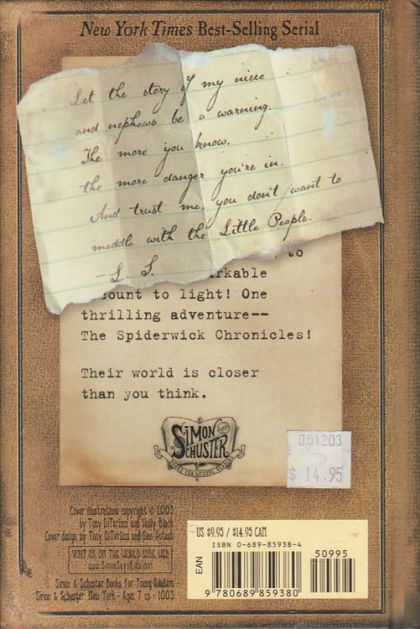 New York Times Best-Selling Serial
Let the story of my niece
and nephews be a warning.
The more you know,
the more danger you're in.
And trust me, you don't want to
meddle with the Little People.
—L. S.
to
rkable
count to light! One
thrilling adventure--
The Spiderwick Chronicles!
Their world is closer
than you think.
SIMON
SCHUSTER
051203
$ 14.95
Cover illustrations copyright © 2003
by Tony DiTerlizzi and Holly Black
Cover design by Tony DiTerlizzi and Dan Potash
VISIT US ON THE WORLD WIDE WEB
www.SimonSaysKids.com
Simon & Schuster Books for Young Readers
Simon & Schuster New York · Ages 7 up · 1003
US $9.95 / $14.95 CAN
ISBN 0-689-85938-4
50995
EAN
9 780689 859380